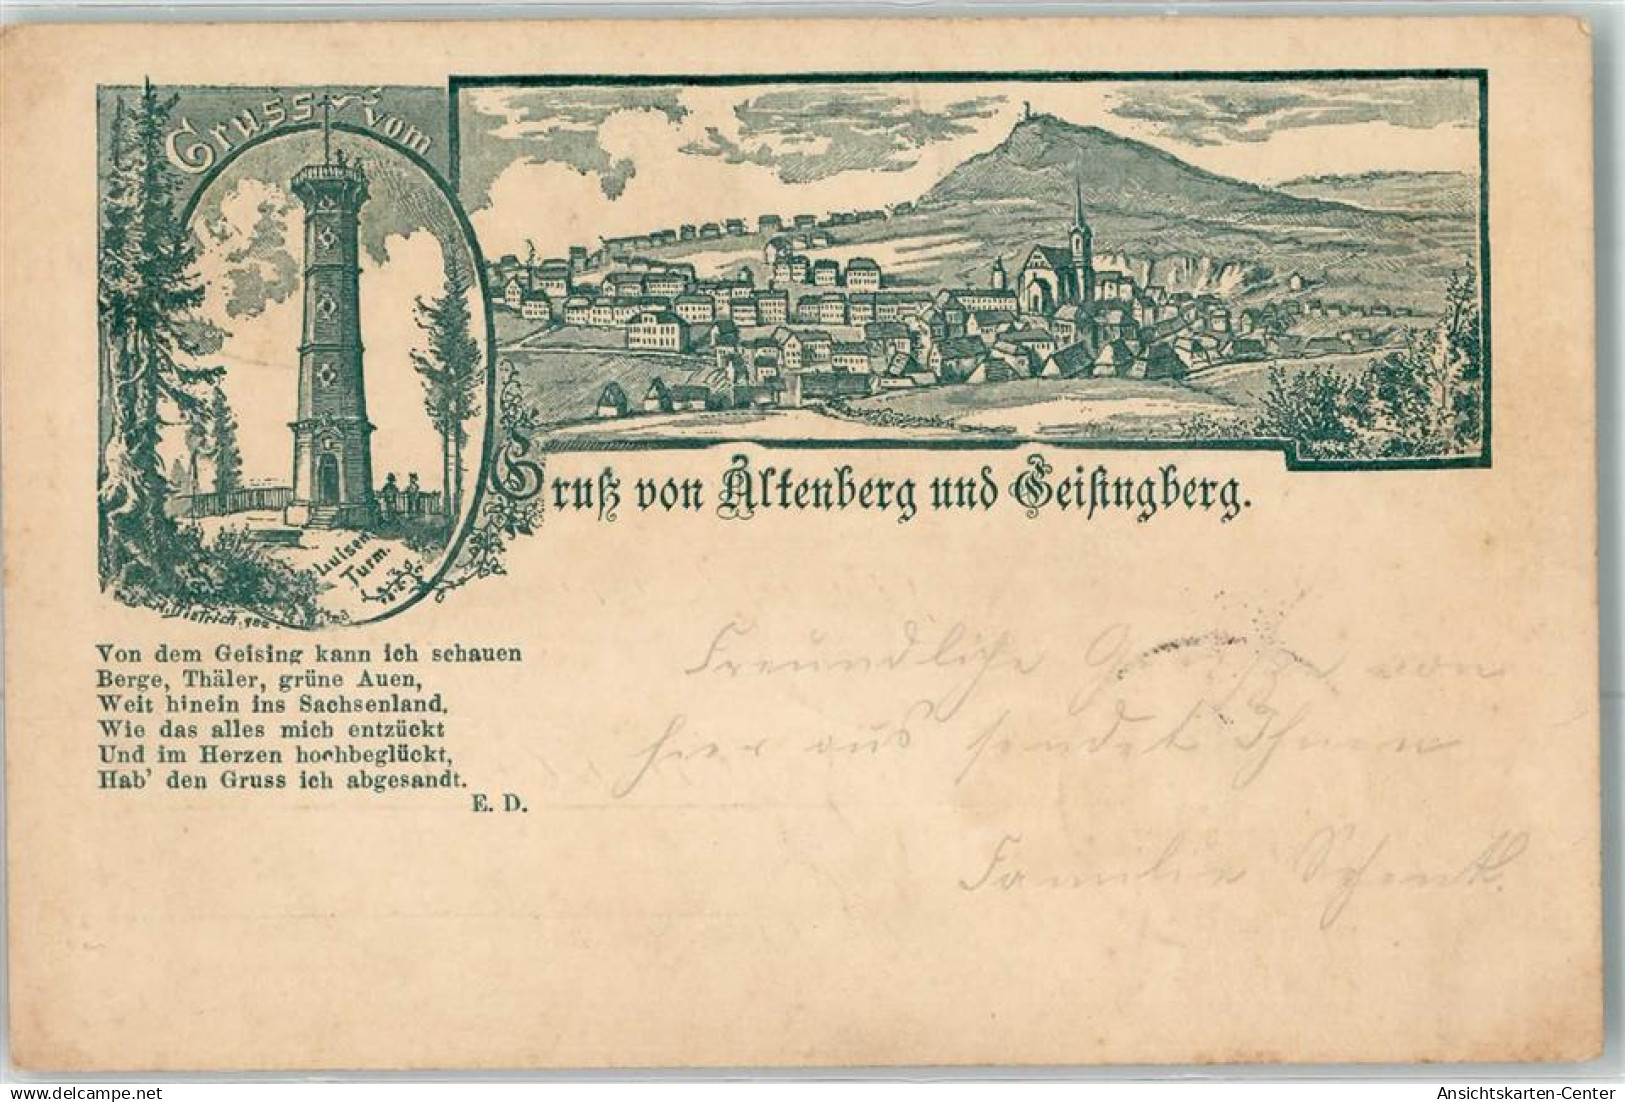 Gruss vom
Luisen
Turm.
Von dem Geising kann ich schauen
Berge, Thäler, grüne Auen,
Weit hinein ins Sachsenland.
Wie das alles mich entzückt
Und im Herzen hochbeglückt,
Hab' den Gruss ich abgesandt.
E. D.
Gruß von Altenberg und Geisingberg.
Freundliche Grüsse von
hier aus sendet Ihnen
Familie Schenk.
Ansichtskarten-Center